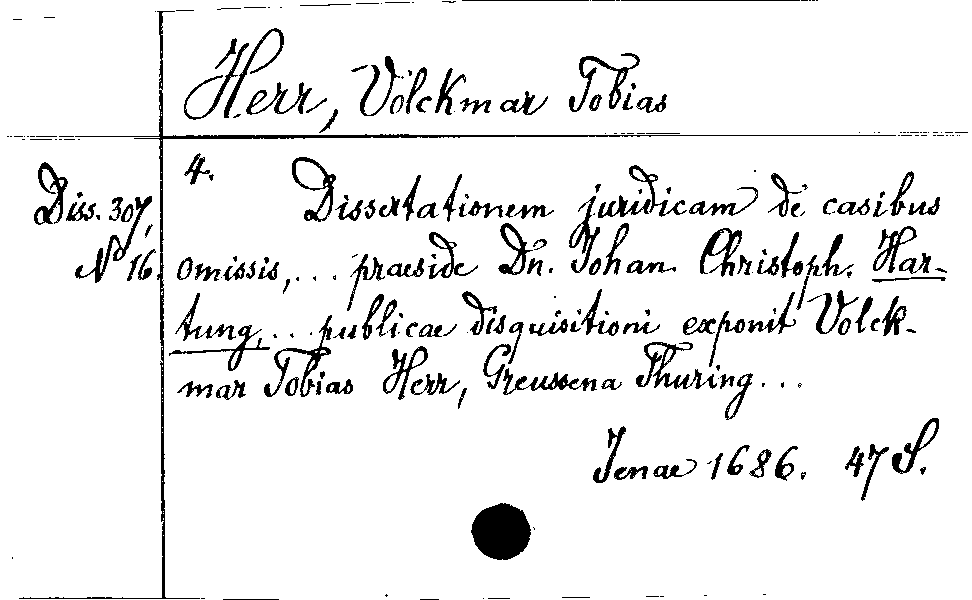 Herr, Volckmar Tobias
Diss. 307,
No 16.
4. Dissertationem juridicam de casibus
omissis,... praeside Dn. Johan. Christoph. Har-
tung,... publicae disquisitioni exponit Volck-
mar Tobias Herr, Greussena Thuring...
Jenae 1686. 47 S.